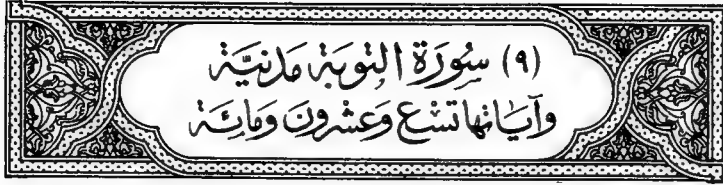 (٩) سُورَة التوبَة مَدَنيَّة
وَآيَاتهَا تِسْع وَعشرُونَ وَمِائَة